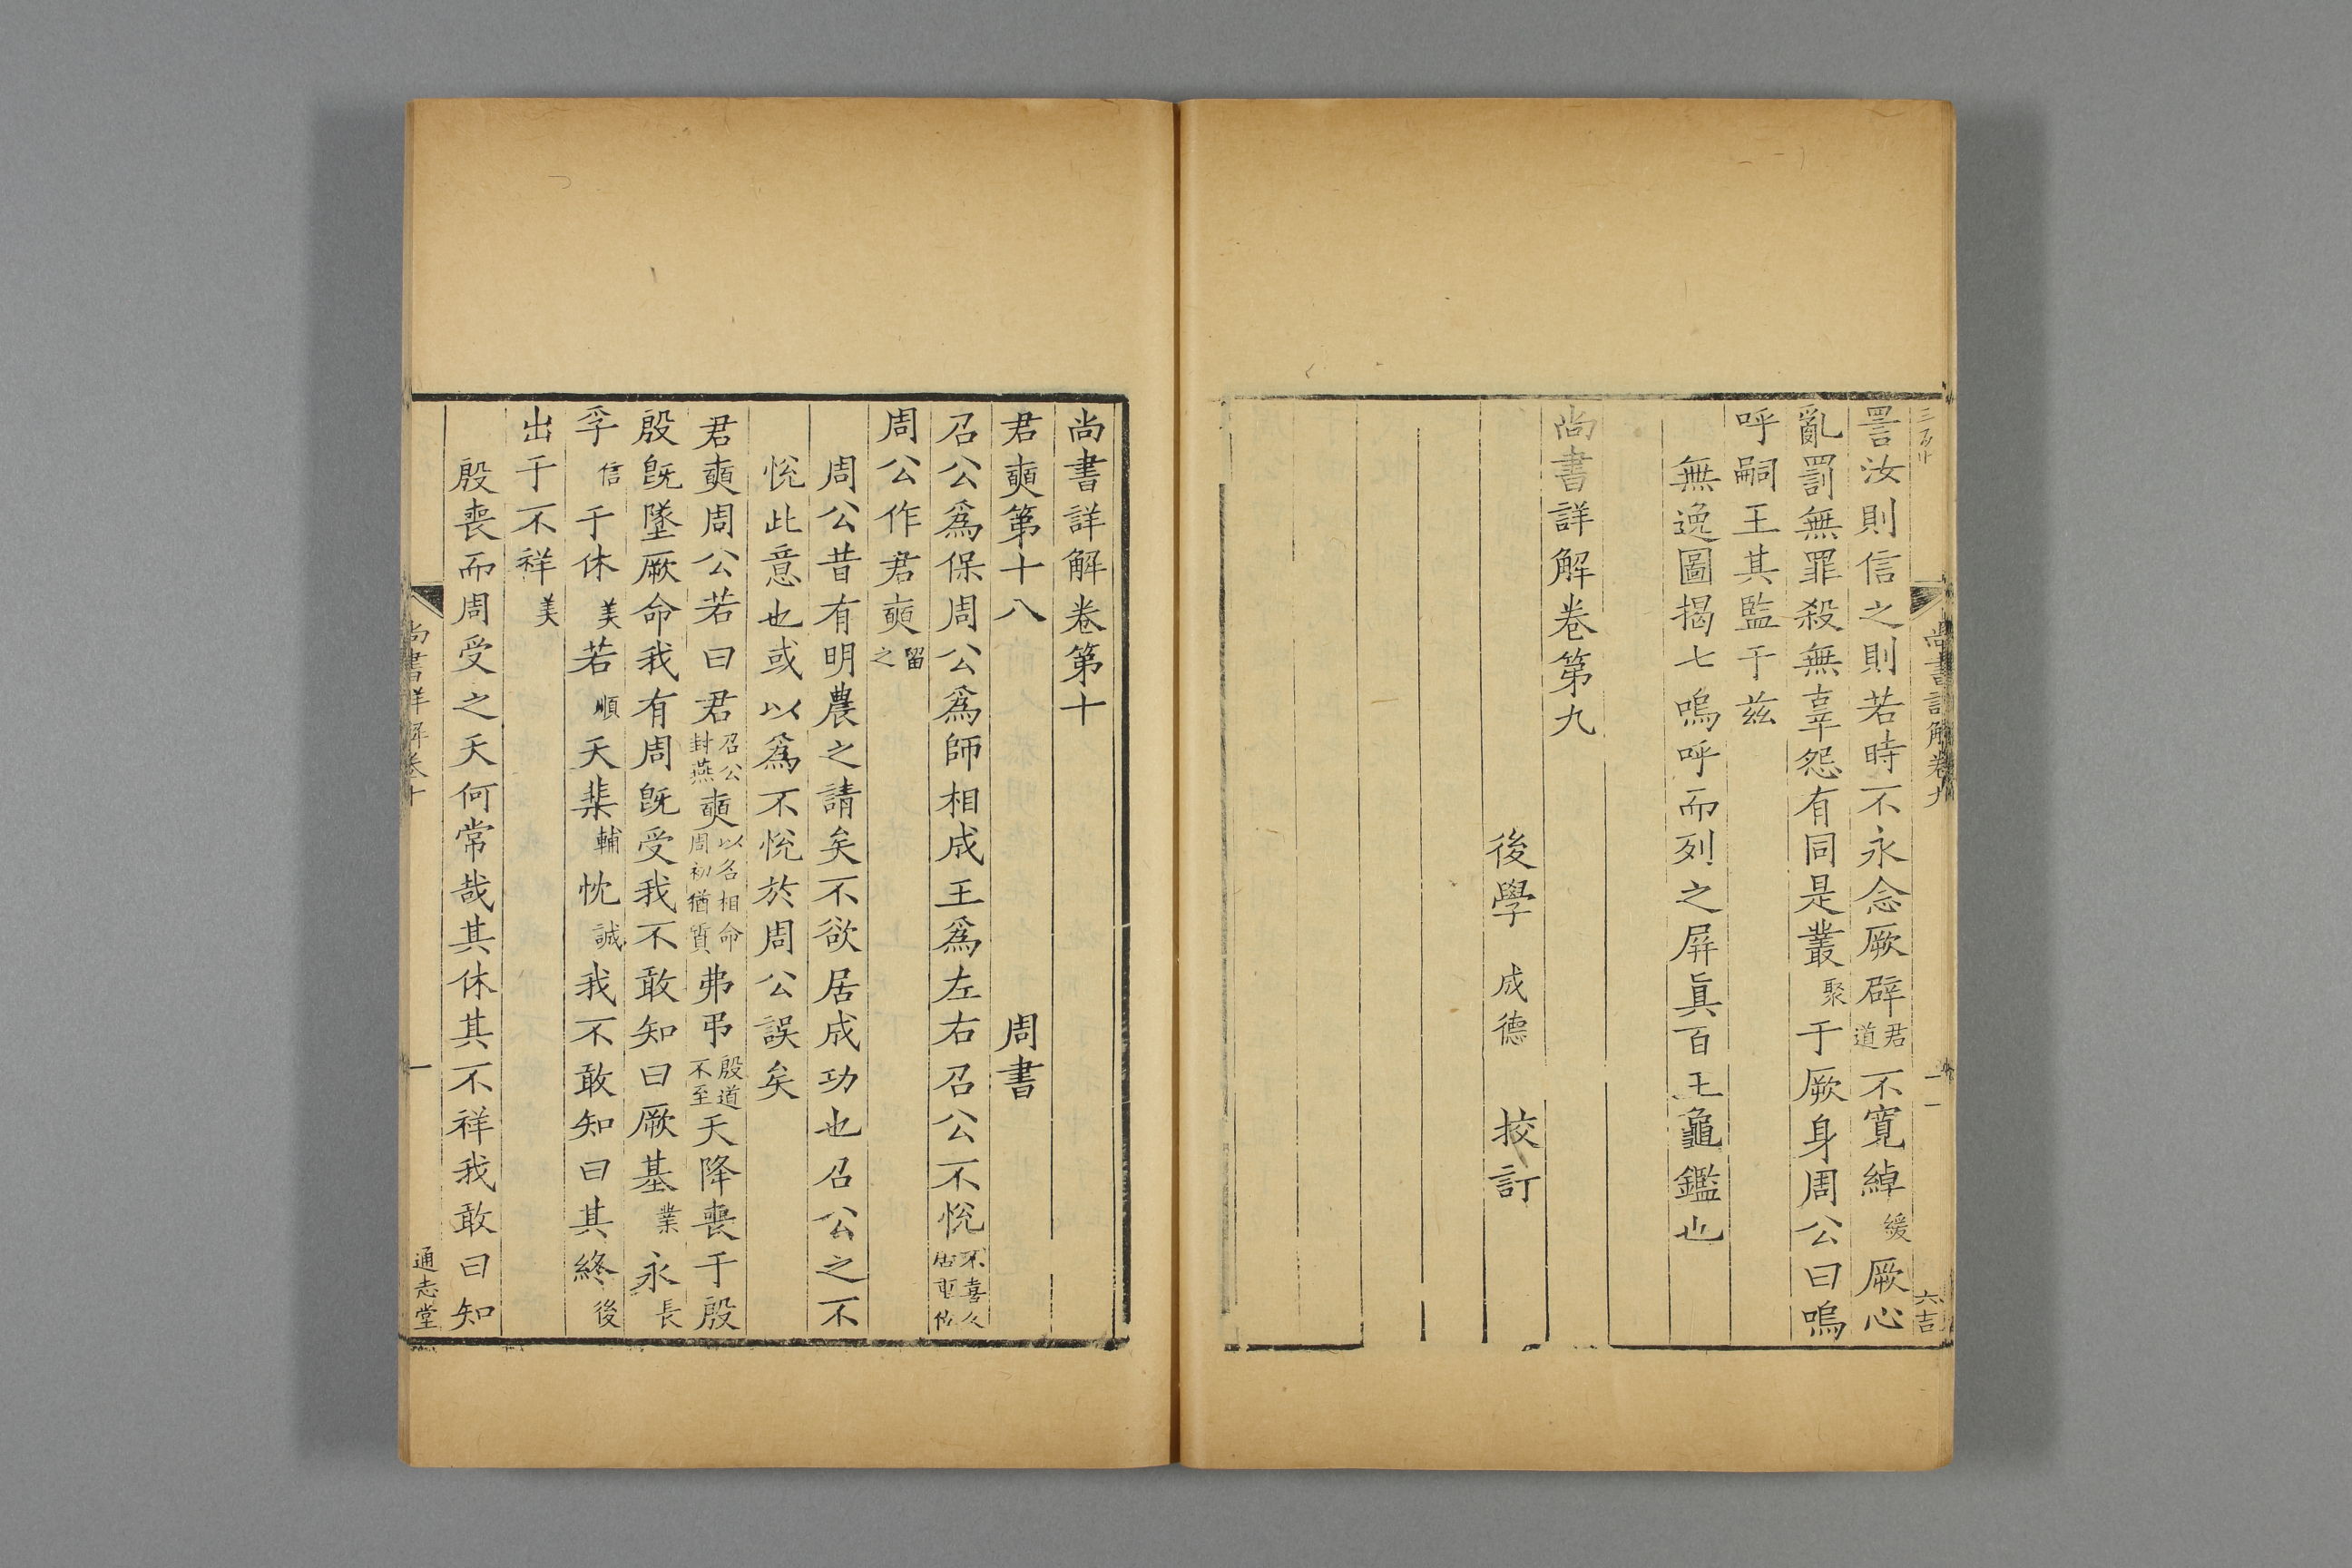 詈汝則信之則若時不永念厥辟君道不寬綽緩厥心
亂罰無罪殺無辜怨有同是叢聚于厥身周公曰嗚
呼嗣王其監于茲
無逸圖揭七嗚呼而列之屏真百王龜鑑也
尚書詳解卷第九
後學 成德 挍訂
尚書詳解卷第十
君奭第十八 周書
召公為保周公為師相成王為左右召公不悅不喜久
周公作君奭留之
周公昔有明農之請矣不欲居成功也召公之不
悅此意也或以為不悅於周公誤矣
君奭周公若曰君召公封燕奭以名相命周初猶質弗弔殷道不至天降喪于殷
殷旣墜厥命我有周旣受我不敢知曰厥基業永長
孚信于休美若順天棐輔忱誠我不敢知曰其終後
出于不祥美
殷喪而周受之天何常哉其休其不祥我敢曰知
尚書詳解卷十
一
通志堂